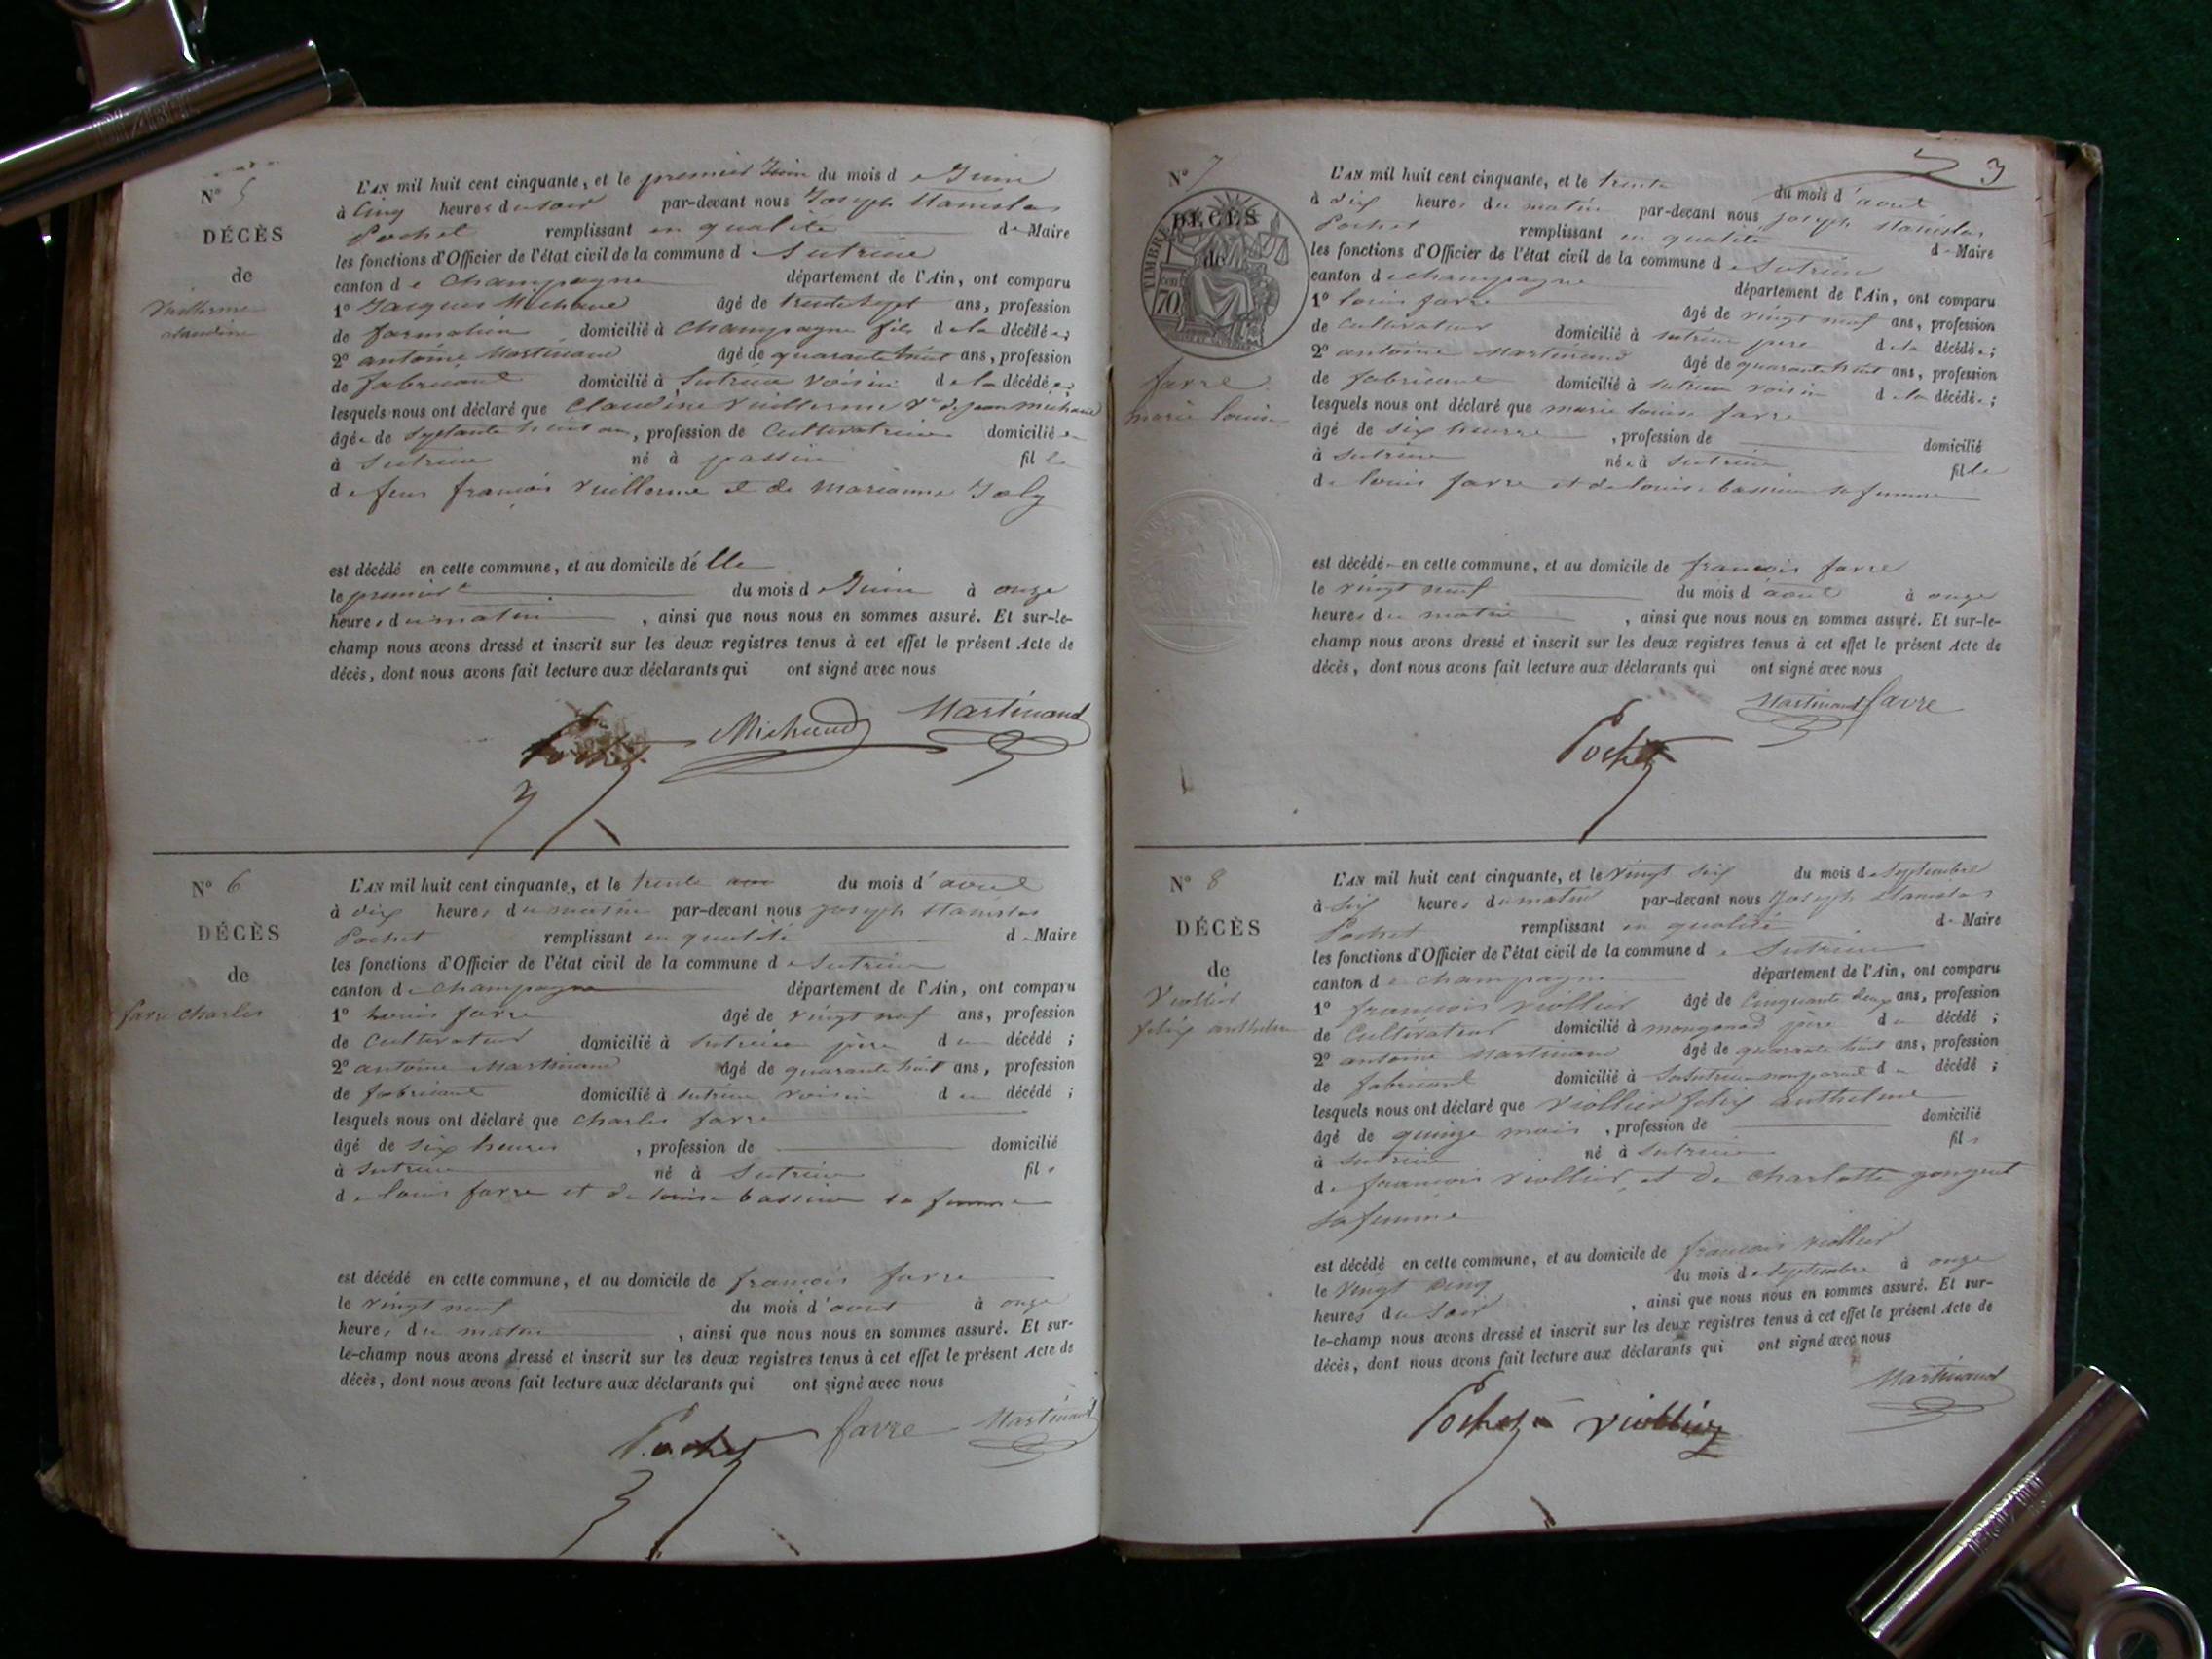 N° 5
DÉCÈS
de
Vuillerme
claudine
L'AN mil huit cent cinquante, et le premier Juin du mois de Juin
à Cinq heures du soir par-devant nous Joseph Stanislas
Pochet remplissant en qualité de Maire
les fonctions d'Officier de l'état civil de la commune de Sutrieu
canton de Champagne département de l'Ain, ont comparu
1° Jacques Michaud âgé de trente sept ans, profession
de domicilié à Champagne fils de la décédée;
2° antoine Martinand âgé de quarante huit ans, profession
de fabricant domicilié à Sutrieu voisin de la décédée;
lesquels nous ont déclaré que Claudine Vuillerme Ve de jean michaud
âgée de septante huit ans, profession de Cultivatrice domiciliée
à Sutrieu né à passin fille
de feus francois Vuillerme et de Marianne Joly
est décédé en cette commune, et au domicile délle
le premier du mois de Juin à onze
heures du matin, ainsi que nous nous en sommes assuré. Et sur-le-
champ nous avons dressé et inscrit sur les deux registres tenus à cet effet le présent Acte de
décès, dont nous avons fait lecture aux déclarants qui ont signé avec nous
Pochet Michaud Martinand
N° 6
DÉCÈS
de
favre charles
L'AN mil huit cent cinquante, et le trente du mois d'aout
à dix heures du matin par-devant nous joseph stanislas
Pochet remplissant en qualité de Maire
les fonctions d'Officier de l'état civil de la commune de Sutrieu
canton de champagne département de l'Ain, ont comparu
1° Louis favre âgé de vingt neuf ans, profession
de Cultivateur domicilié à Sutrieu père du décédé;
2° antoine Martinand âgé de quarante huit ans, profession
de fabricant domicilié à sutrieu voisin du décédé;
lesquels nous ont déclaré que charles favre
âgé de six heures, profession de domicilié
à sutrieu né à Sutrieu fils
de louis favre et de louise bassieu sa femme
est décédé en cette commune, et au domicile de françois favre
le vingt neuf du mois d'aout à onze
heures du matin, ainsi que nous nous en sommes assuré. Et sur-
le-champ nous avons dressé et inscrit sur les deux registres tenus à cet effet le présent Acte de
décès, dont nous avons fait lecture aux déclarants qui ont signé avec nous
Pochet favre Martinand
3
N° 7
DÉCÈS
de
TIMBRE
70
favre
marie louise
L'AN mil huit cent cinquante, et le trente du mois d'aout
à dix heures du matin par-devant nous joseph stanislas
Pochet remplissant en qualité de Maire
les fonctions d'Officier de l'état civil de la commune de Sutrieu
canton de champagne département de l'Ain, ont comparu
1° louis favre âgé de vingt neuf ans, profession
de Cultivateur domicilié à sutrieu pere de la décédée;
2° antoine Martinand âgé de quarante huit ans, profession
de fabricant domicilié à sutrieu voisin de la décédée;
lesquels nous ont déclaré que marie louise favre
âgé de six heures, profession de domicilié
à sutrieu née à sutrieu fille
de louis favre et de louise bassieu sa femme
est décédée en cette commune, et au domicile de francois favre
le vingt neuf du mois d'aout à onze
heures du matin, ainsi que nous nous en sommes assuré. Et sur-le-
champ nous avons dressé et inscrit sur les deux registres tenus à cet effet le présent Acte de
décès, dont nous avons fait lecture aux déclarants qui ont signé avec nous
Martinand favre
Pochet
N° 8
DÉCÈS
de
Viollier
felix anthelme
L'AN mil huit cent cinquante, et le vingt six du mois de Septembre
à dix heures du matin par-devant nous Joseph Stanislas
Pochet remplissant en qualité de Maire
les fonctions d'Officier de l'état civil de la commune de Sutrieu
canton de champagne département de l'Ain, ont comparu
1° francois viollier âgé de Cinquante deux ans, profession
de Cultivateur domicilié à père du décédé;
2° antoine Martinand âgé de quarante huit ans, profession
de fabricant domicilié à Sutrieu non parent du décédé;
lesquels nous ont déclaré que viollier felix anthelme
âgé de quinze mois, profession de domicilié
à sutrieu né à sutrieu fils
de francois viollier et de Charlotte
sa femme
est décédé en cette commune, et au domicile de francois viollier
le vingt cinq du mois de septembre à onze
heures du soir, ainsi que nous nous en sommes assuré. Et sur-
le-champ nous avons dressé et inscrit sur les deux registres tenus à cet effet le présent Acte de
décès, dont nous avons fait lecture aux déclarants qui ont signé avec nous
Martinand
Pochet viollier